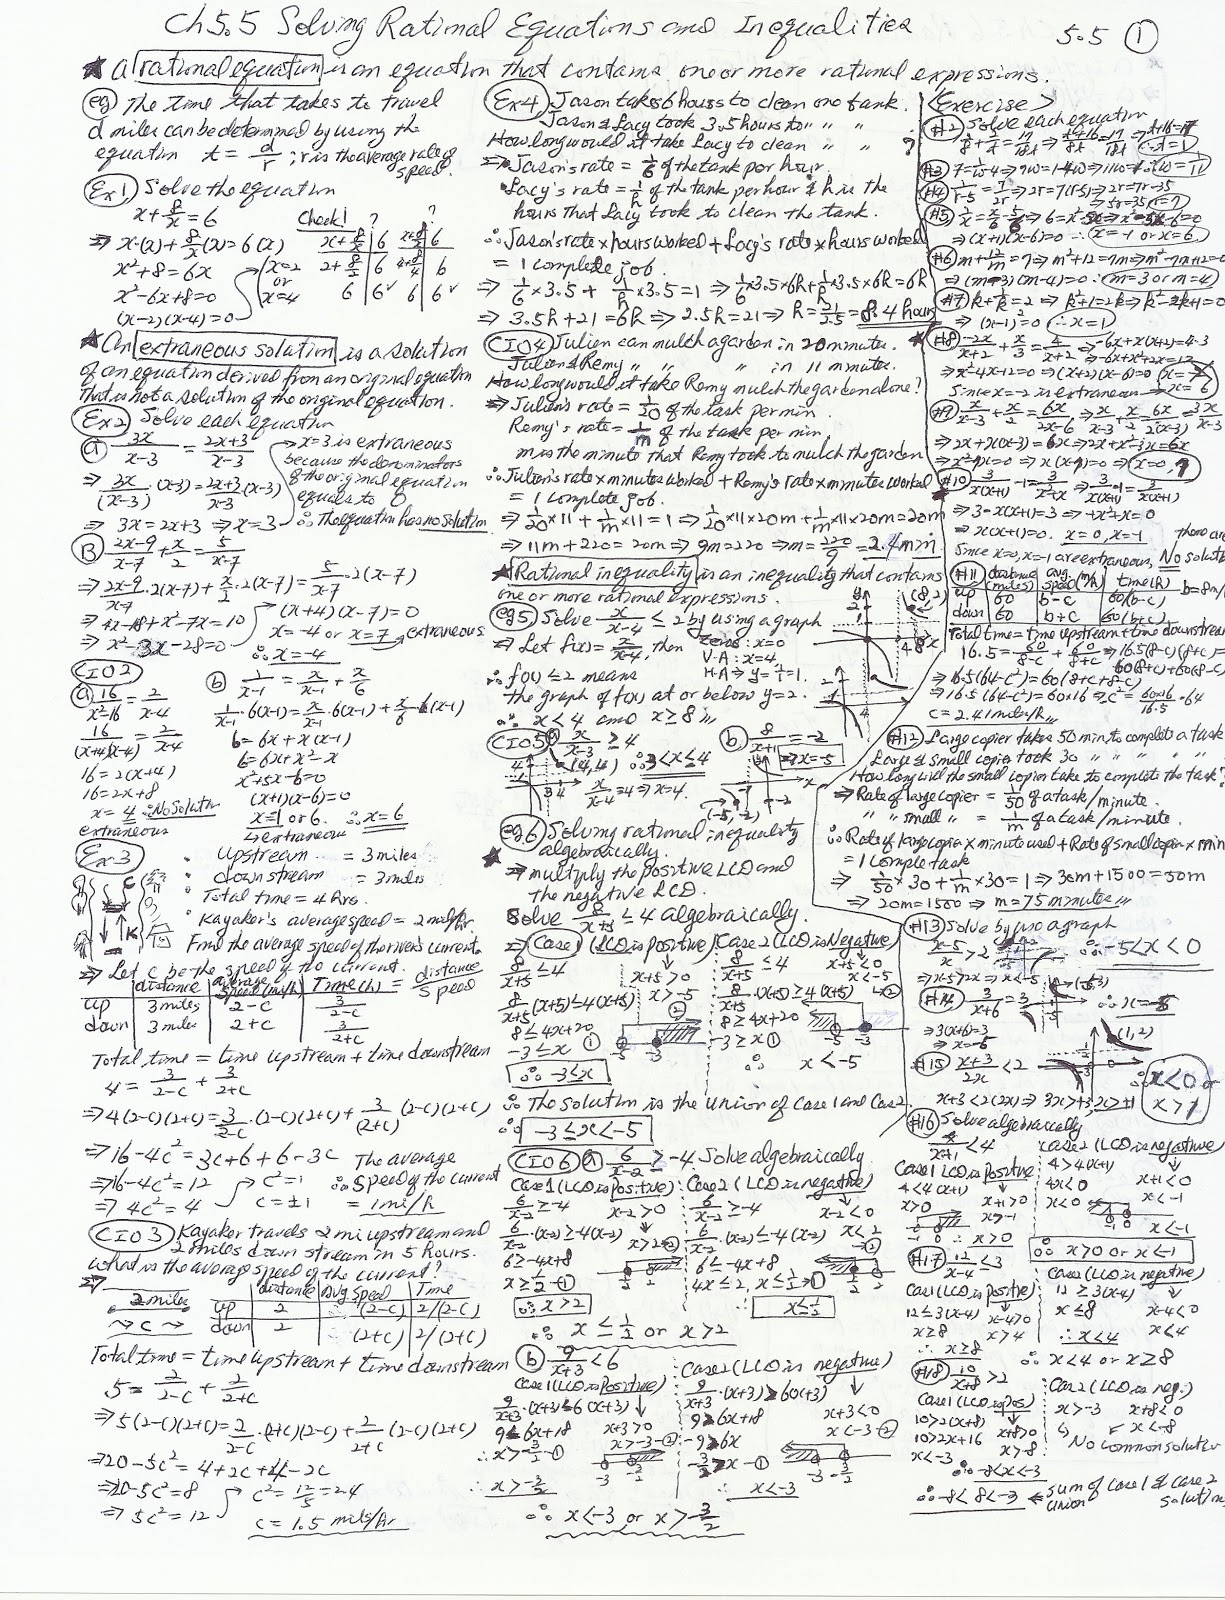 Ch 5.5 Solving Rational Equations and Inequalities
5.5 ①
★ A rational equation is an equation that contains one or more rational expressions.
eg The time that takes to travel
d miles can be determined by using the
equation t = d/r ; r is the average rate of speed.
Ex1 Solve the equation
x + 8/x = 6
⇒ x·(x) + 8/x (x) = 6(x)
x² + 8 = 6x
x² - 6x + 8 = 0
(x-2)(x-4) = 0
x = 2
or
x = 4
Check!
★ An extraneous solution is a solution
of an equation derived from an original equation
that is not a solution of the original equation.
Ex2 Solve each equation
ⓐ 3x/(x-3) = (2x+3)/(x-3)
⇒ 3x/(x-3) · (x-3) = (2x+3)/(x-3) · (x-3)
⇒ 3x = 2x+3 ⇒ x = 3
x = 3 is extraneous
because the denominators
of the original equation
equals to 0
∴ The equation has no solution
Ⓑ (2x-9)/(x-7) + x/2 = 5/(x-7)
⇒ (2x-9)/(x-7) · 2(x-7) + x/2 · 2(x-7) = 5/(x-7) · 2(x-7)
⇒ 4x - 18 + x² - 7x = 10
⇒ x² - 3x - 28 = 0
(x+4)(x-7) = 0
x = -4 or x = 7 extraneous
∴ x = -4
CIO2
ⓐ 16/(x²-16) = 2/(x-4)
16/((x+4)(x-4)) = 2/(x-4)
16 = 2(x+4)
16 = 2x+8
x = 4 ∴ No Solution
extraneous
ⓑ 1/(x-1) = x/(x-1) + x/6
1/(x-1) · 6(x-1) = x/(x-1) · 6(x-1) + x/6 · 6(x-1)
6 = 6x + x(x-1)
6 = 6x + x² - x
x² + 5x - 6 = 0
(x+1)(x-6) = 0
x = 1 or 6. ∴ x = 6
extraneous
Ex3
• Upstream = 3 miles
• downstream = 3 miles
• Total time = 4 hrs.
• Kayaker's average speed = 2 mile/hr
Find the average speed of the river's current.
⇒ Let c be the speed of the current.
distance | average speed (mi/h) | Time (h) = distance/speed
up | 3 miles | 2-c | 3/(2-c)
down | 3 miles | 2+c | 3/(2+c)
Total time = time upstream + time downstream
4 = 3/(2-c) + 3/(2+c)
⇒ 4(2-c)(2+c) = 3/(2-c) · (2-c)(2+c) + 3/(2+c) (2-c)(2+c)
⇒ 16 - 4c² = 3c + 6 + 6 - 3c
⇒ 16 - 4c² = 12
⇒ 4c² = 4
c² = 1
c = ±1
The average
∴ Speed of the current
= 1 mi/h
CIO3 Kayaker travels 2 mi upstream and
2 miles down stream in 5 hours.
what is the average speed of the current?
2 miles
→ c →
distance | Avg speed | Time
up | 2 | (2-c) | 2/(2-c)
down | 2 | (2+c) | 2/(2+c)
Total time = time upstream + time downstream
5 = 2/(2-c) + 2/(2+c)
⇒ 5(2-c)(2+c) = 2/(2-c) · (2+c)(2-c) + 2/(2+c) (2-c)(2+c)
⇒ 20 - 5c² = 4 + 2c + 4 - 2c
⇒ 20 - 5c² = 8
⇒ 5c² = 12
c² = 12/5 = 2.4
c = 1.5 mile/hr
Ex4 Jason takes 6 hours to clean one tank.
Jason & Lacy took 3.5 hours to " " "
How long would it take Lacy to clean " " ?
⇒ Jason's rate = 1/6 of the tank per hour
Lacy's rate = 1/h of the tank per hour & h is the
hours that Lacy took to clean the tank.
∴ Jason's rate × hours worked + Lacy's rate × hours worked
= 1 complete job.
⇒ 1/6 × 3.5 + 1/h × 3.5 = 1 ⇒ 1/6 × 3.5 × 6h + 1/h × 3.5 × 6h = 6h
⇒ 3.5h + 21 = 6h ⇒ 2.5h = 21 ⇒ h = 21/2.5 = 8.4 hours
CIO4 Julien can mulch a garden in 20 minutes.
Julien & Remy " " " in 11 minutes.
How long would it take Remy mulch the garden alone?
⇒ Julien's rate = 1/20 of the task per min.
Remy's rate = 1/m of the task per min.
m is the minute that Remy took to mulch the garden
∴ Julien's rate × minutes worked + Remy's rate × minutes worked
= 1 complete job.
⇒ 1/20 × 11 + 1/m × 11 = 1 ⇒ 1/20 × 11 × 20m + 1/m × 11 × 20m = 20m
⇒ 11m + 220 = 20m ⇒ 9m = 220 ⇒ m = 220/9 = 2.4 min
★ Rational inequality is an inequality that contains
one or more rational expressions.
eg5 Solve x/(x-4) ≤ 2 by using a graph
⇒ Let f(x) = x/(x-4), then
zeros: x = 0
V·A: x = 4,
H·A ⇒ y = 1/1 = 1.
∴ f(x) ≤ 2 means
the graph of f(x) at or below y = 2.
∴ x < 4 and x ≥ 8
(8,2)
CIO5 ⓐ x/(x-3) ≥ 4
(4,4) ∴ 3 < x ≤ 4
x/(x-3) = 4 ⇒ x = 4.
ⓑ 8/(x+1) = -2
⇒ x = -5
(-5,-2)
eg6 Solving rational inequality
algebraically.
★ ⇒ multiply the positive LCD and
the negative LCD.
Solve 8/(x+5) ≤ 4 algebraically.
⇒ Case1 (LCD is positive)
8/(x+5) ≤ 4
x+5 > 0
x > -5
8/(x+5) (x+5) ≤ 4(x+5)
8 ≤ 4x+20
-3 ≤ x ①
∴ -3 ≤ x
Case 2 (LCD is Negative)
8/(x+5) ≤ 4
x+5 < 0
x < -5
8/(x+5) · (x+5) ≥ 4(x+5)
8 ≥ 4x+20
-3 ≥ x ①
∴ x < -5
∴ The solution is the union of Case1 and Case2.
∴ -3 ≤ x < -5
CIO6 ⓐ 6/(x-2) ≥ -4 Solve algebraically
Case1 (LCD is Positive)
6/(x-2) ≥ -4
x-2 > 0
6/(x-2) · (x-2) ≥ -4(x-2)
x > 2 ②
6 ≥ -4x+8
x ≥ 1/2 ①
∴ x > 2
Case2 (LCD is negative)
6/(x-2) ≥ -4
x-2 < 0
6/(x-2) · (x-2) ≤ -4(x-2)
x < 2
6 ≤ -4x+8
4x ≤ 2, x ≤ 1/2 ①
∴ x ≤ 1/2
∴ x ≤ 1/2 or x > 2
ⓑ 9/(x+3) < 6
Case1 (LCD is Positive)
9/(x+3) · (x+3) < 6(x+3)
9 < 6x+18
x+3 > 0
x > -3 ②
∴ x > -3/2 ①
∴ x > -3/2
Case2 (LCD is negative)
9/(x+3) · (x+3) > 6(x+3)
9 > 6x+18
x+3 < 0
x < -3 ②
-9 > 6x
-3/2 > x ①
∴ x < -3
∴ x < -3 or x > -3/2
⟨Exercise⟩
#2 Solve each equation
#3
#4 1/(r-5) = 7/2r ⇒ 2r = 7(r-5) ⇒ 2r = 7r-35
⇒ 5r = 35 r = 7
#5
⇒ (x+1)(x-6) = 0 ∴ x = -1 or x = 6
#6 m + 12/m = 7 ⇒ m² + 12 = 7m ⇒ m² - 7m + 12 = 0
⇒ (m-3)(m-4) = 0 ∴ m = 3 or m = 4
#7 k + 1/k = 2 ⇒ k² + 1 = 2k ⇒ k² - 2k + 1 = 0
⇒ (x-1)² = 0 ∴ x = 1
★ #8 -2x/(x+2) + x/3 = 4/(x+2) ⇒ -6x + x(x+2) = 4·3
⇒ -6x + x² + 2x = 12
⇒ x² - 4x - 12 = 0 ⇒ (x+2)(x-6) = 0
Since x = -2 is extraneous → x = 6
#9 x/(x-3) + x/2 = 6x/(2x-6)
⇒ 2x + x(x-3) = 6x ⇒ 2x + x² - 3x = 6x
⇒ x(x-7) = 0 ⇒ x = 0, 7
#10
⇒ 3 - x(x+1) = 3 ⇒ -x² - x = 0
⇒ x(x+1) = 0. x = 0, x = -1
Since x = 0, x = -1 are extraneous, No solution
#11 distance (miles) | avg. speed (mi/h) | time (h)
up | 60 | b-c | 60/(b-c)
down | 60 | b+c | 60/(b+c)
Total time = time upstream + time downstream
16.5 = 60/(8-c) + 60/(8+c) ⇒ 16.5(8-c)(8+c) =
60(8+c) + 60(8-c)
⇒ 16.5(64-c²) = 60(8+c+8-c)
⇒ 16.5(64-c²) = 60×16 ⇒ c² = 60×16/16.5 - 64
c = 2.41 mile/h
#12 Large copier takes 50 min. to complete a task
Large & small copier took 30 " " " "
How long will the small copier take to complete the task?
⇒ Rate of large copier = 1/50 of a task/minute.
" " small " = 1/m of a task/minute.
∴ Rate of large copier × minute used + Rate of small copier × min
= 1 comple task
⇒ 1/50 × 30 + 1/m × 30 = 1 ⇒ 30m + 1500 = 50m
⇒ 20m = 1500 ⇒ m = 75 minutes
#13 Solve by using a graph
(x-5)/x > 2
∴ -5 < x < 0
⇒ x-5 > 2x ⇒ x < -5
#14 3/(x+6) = 3
⇒ 3(x+6) = 3
⇒ x = -5
#15 (x+3)/2x < 2
(1,2)
∴ x < 0 or
x > 1
x+3 < 2(2x) ⇒ 3x > +3, x > +1
#16 Solve algebraically
4/(x+1) < 4
Case1 LCD is positive
4 < 4(x+1)
x > 0
x+1 > 0
x > -1
∴ x > 0
Case2 (LCD is negative)
4 > 4(x+1)
4x < 0
x < 0
x+1 < 0
x < -1
x < -1
∴ x > 0 or x < -1
#17 12/(x-4) < 3
Case1 (LCD is positive)
12 ≤ 3(x-4)
x-4 > 0
x ≥ 8
x > 4
∴ x ≥ 8
Case2 (LCD is negative)
12 ≥ 3(x-4)
x ≤ 8
x-4 < 0
x < 4
∴ x < 4
∴ x < 4 or x ≥ 8
#18 10/(x+8) > 2
Case1 (LCD is pos)
10 > 2(x+8)
10 > 2x+16
x+8 > 0
x > -8
x < -3
∴ -8 < x < -3
Case2 (LCD is neg.)
x > -3
x+8 < 0
x < -8
No common solution
∴ -8 < 8 < -3 ← Sum of case 1 & case 2
union solution